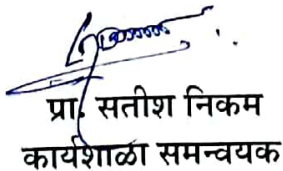 प्रा. सतीश निकम
कार्यशाळा समन्वयक